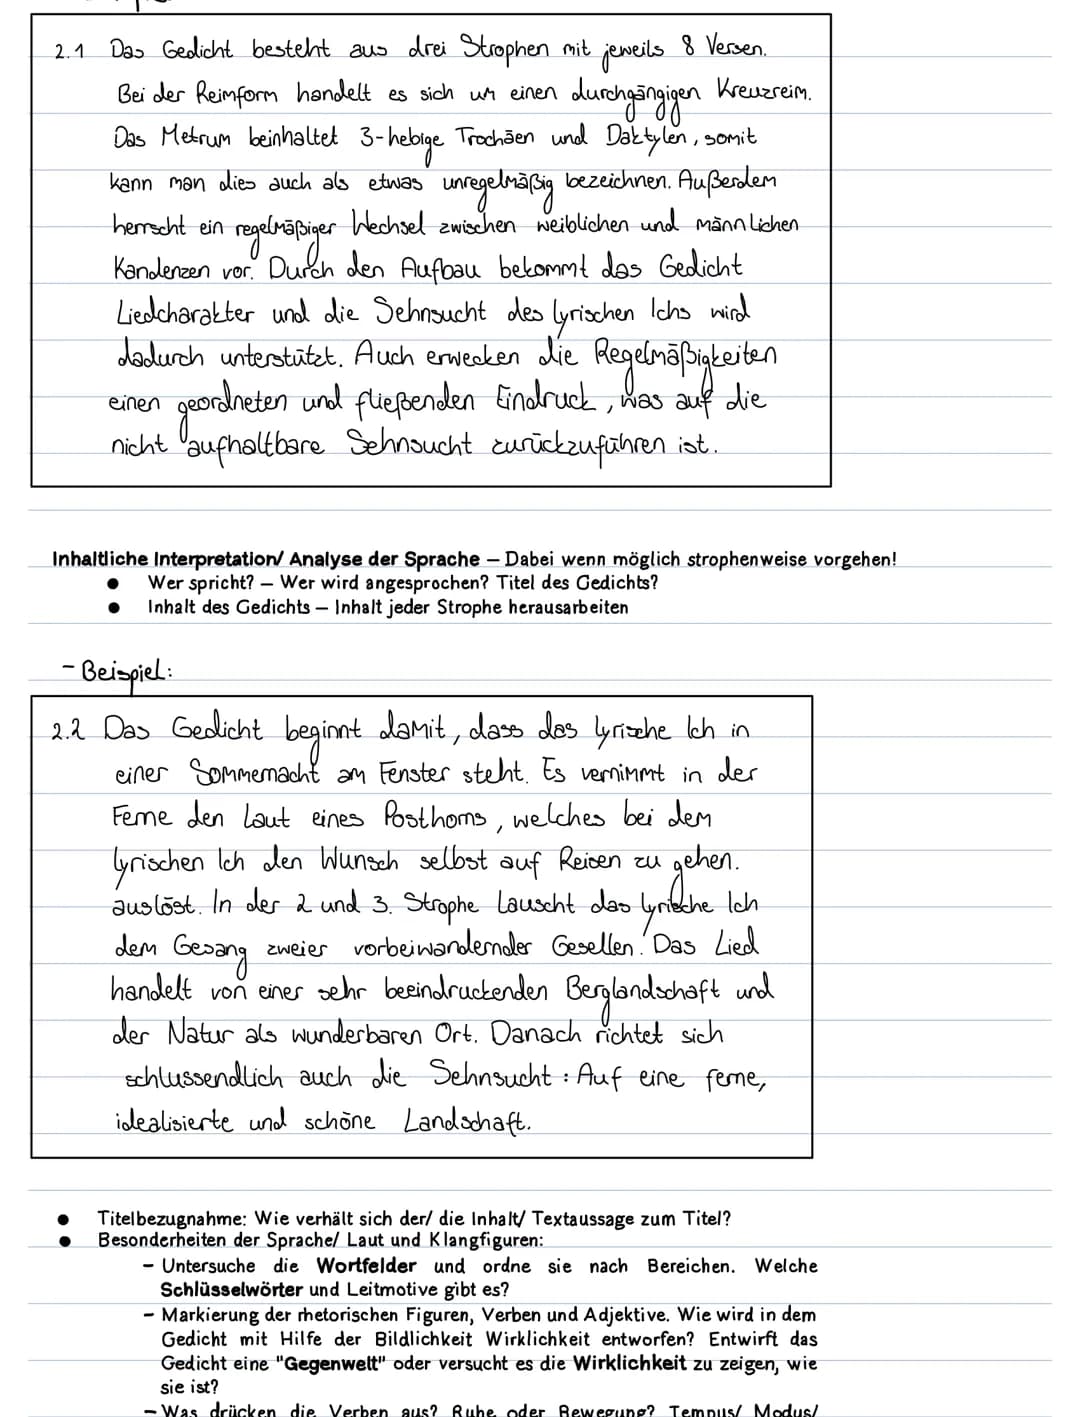 2.1 Das Gedicht besteht aus drei Strophen mit jeweils 8 Versen.
Bei der Reimform handelt es sich um einen durchgängigen Kreuzreim.
Das Metrum beinhaltet 3-hebige Trochäen und Daktylen, somit
kann man dies auch als etwas unregelmäßig bezeichnen. Außerdem
herrscht ein regelmäßiger Wechsel zwischen weiblichen und männlichen
Kandenzen vor. Durch den Aufbau bekommt das Gedicht
Liedcharakter und die Sehnsucht des lyrischen Ichs wird
dadurch unterstützt. Auch erwecken die Regelmäßigkeiten
einen geordneten und fließenden Eindruck, was auf die
nicht aufhaltbare Sehnsucht zurückzuführen ist.
Inhaltliche Interpretation/ Analyse der Sprache – Dabei wenn möglich strophenweise vorgehen!
● Wer spricht? – Wer wird angesprochen? Titel des Gedichts?
● Inhalt des Gedichts – Inhalt jeder Strophe herausarbeiten
- Beispiel:
2.2 Das Gedicht beginnt damit, dass das lyrische Ich in
einer Sommernacht am Fenster steht. Es vernimmt in der
Ferne den Laut eines Posthorns, welches bei dem
lyrischen Ich den Wunsch selbst auf Reisen zu gehen.
auslöst. In der 2 und 3. Strophe lauscht das lyrische Ich
dem Gesang zweier vorbeiwandernder Gesellen. Das Lied
handelt von einer sehr beeindruckenden Berglandschaft und
der Natur als wunderbaren Ort. Danach richtet sich
schlussendlich auch die Sehnsucht: Auf eine ferne,
idealisierte und schöne Landschaft.
● Titelbezugnahme: Wie verhält sich der/ die Inhalt/ Textaussage zum Titel?
● Besonderheiten der Sprache/ Laut und Klangfiguren:
– Untersuche die Wortfelder und ordne sie nach Bereichen. Welche
Schlüsselwörter und Leitmotive gibt es?
– Markierung der rhetorischen Figuren, Verben und Adjektive. Wie wird in dem
Gedicht mit Hilfe der Bildlichkeit Wirklichkeit entworfen? Entwirft das
Gedicht eine "Gegenwelt" oder versucht es die Wirklichkeit zu zeigen, wie
sie ist?
– Was drücken die Verben aus? Ruhe oder Bewegung? Tempus/ Modus/